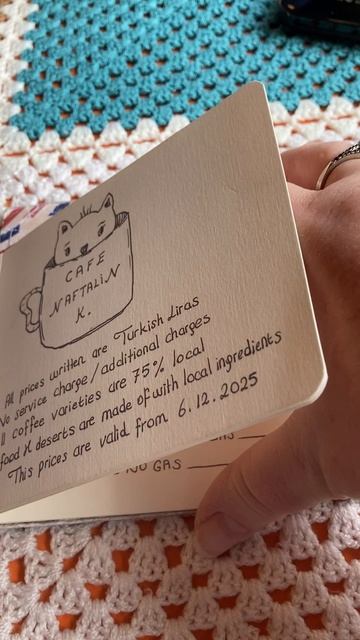 CAFE
NAFTALIN
K.
All prices written are Turkish Liras
No service charge/additional charges
ll coffee varieties are 75% local
food & deserts are made of with local ingredients
This prices are valid from 6.12.2025
NO GAS